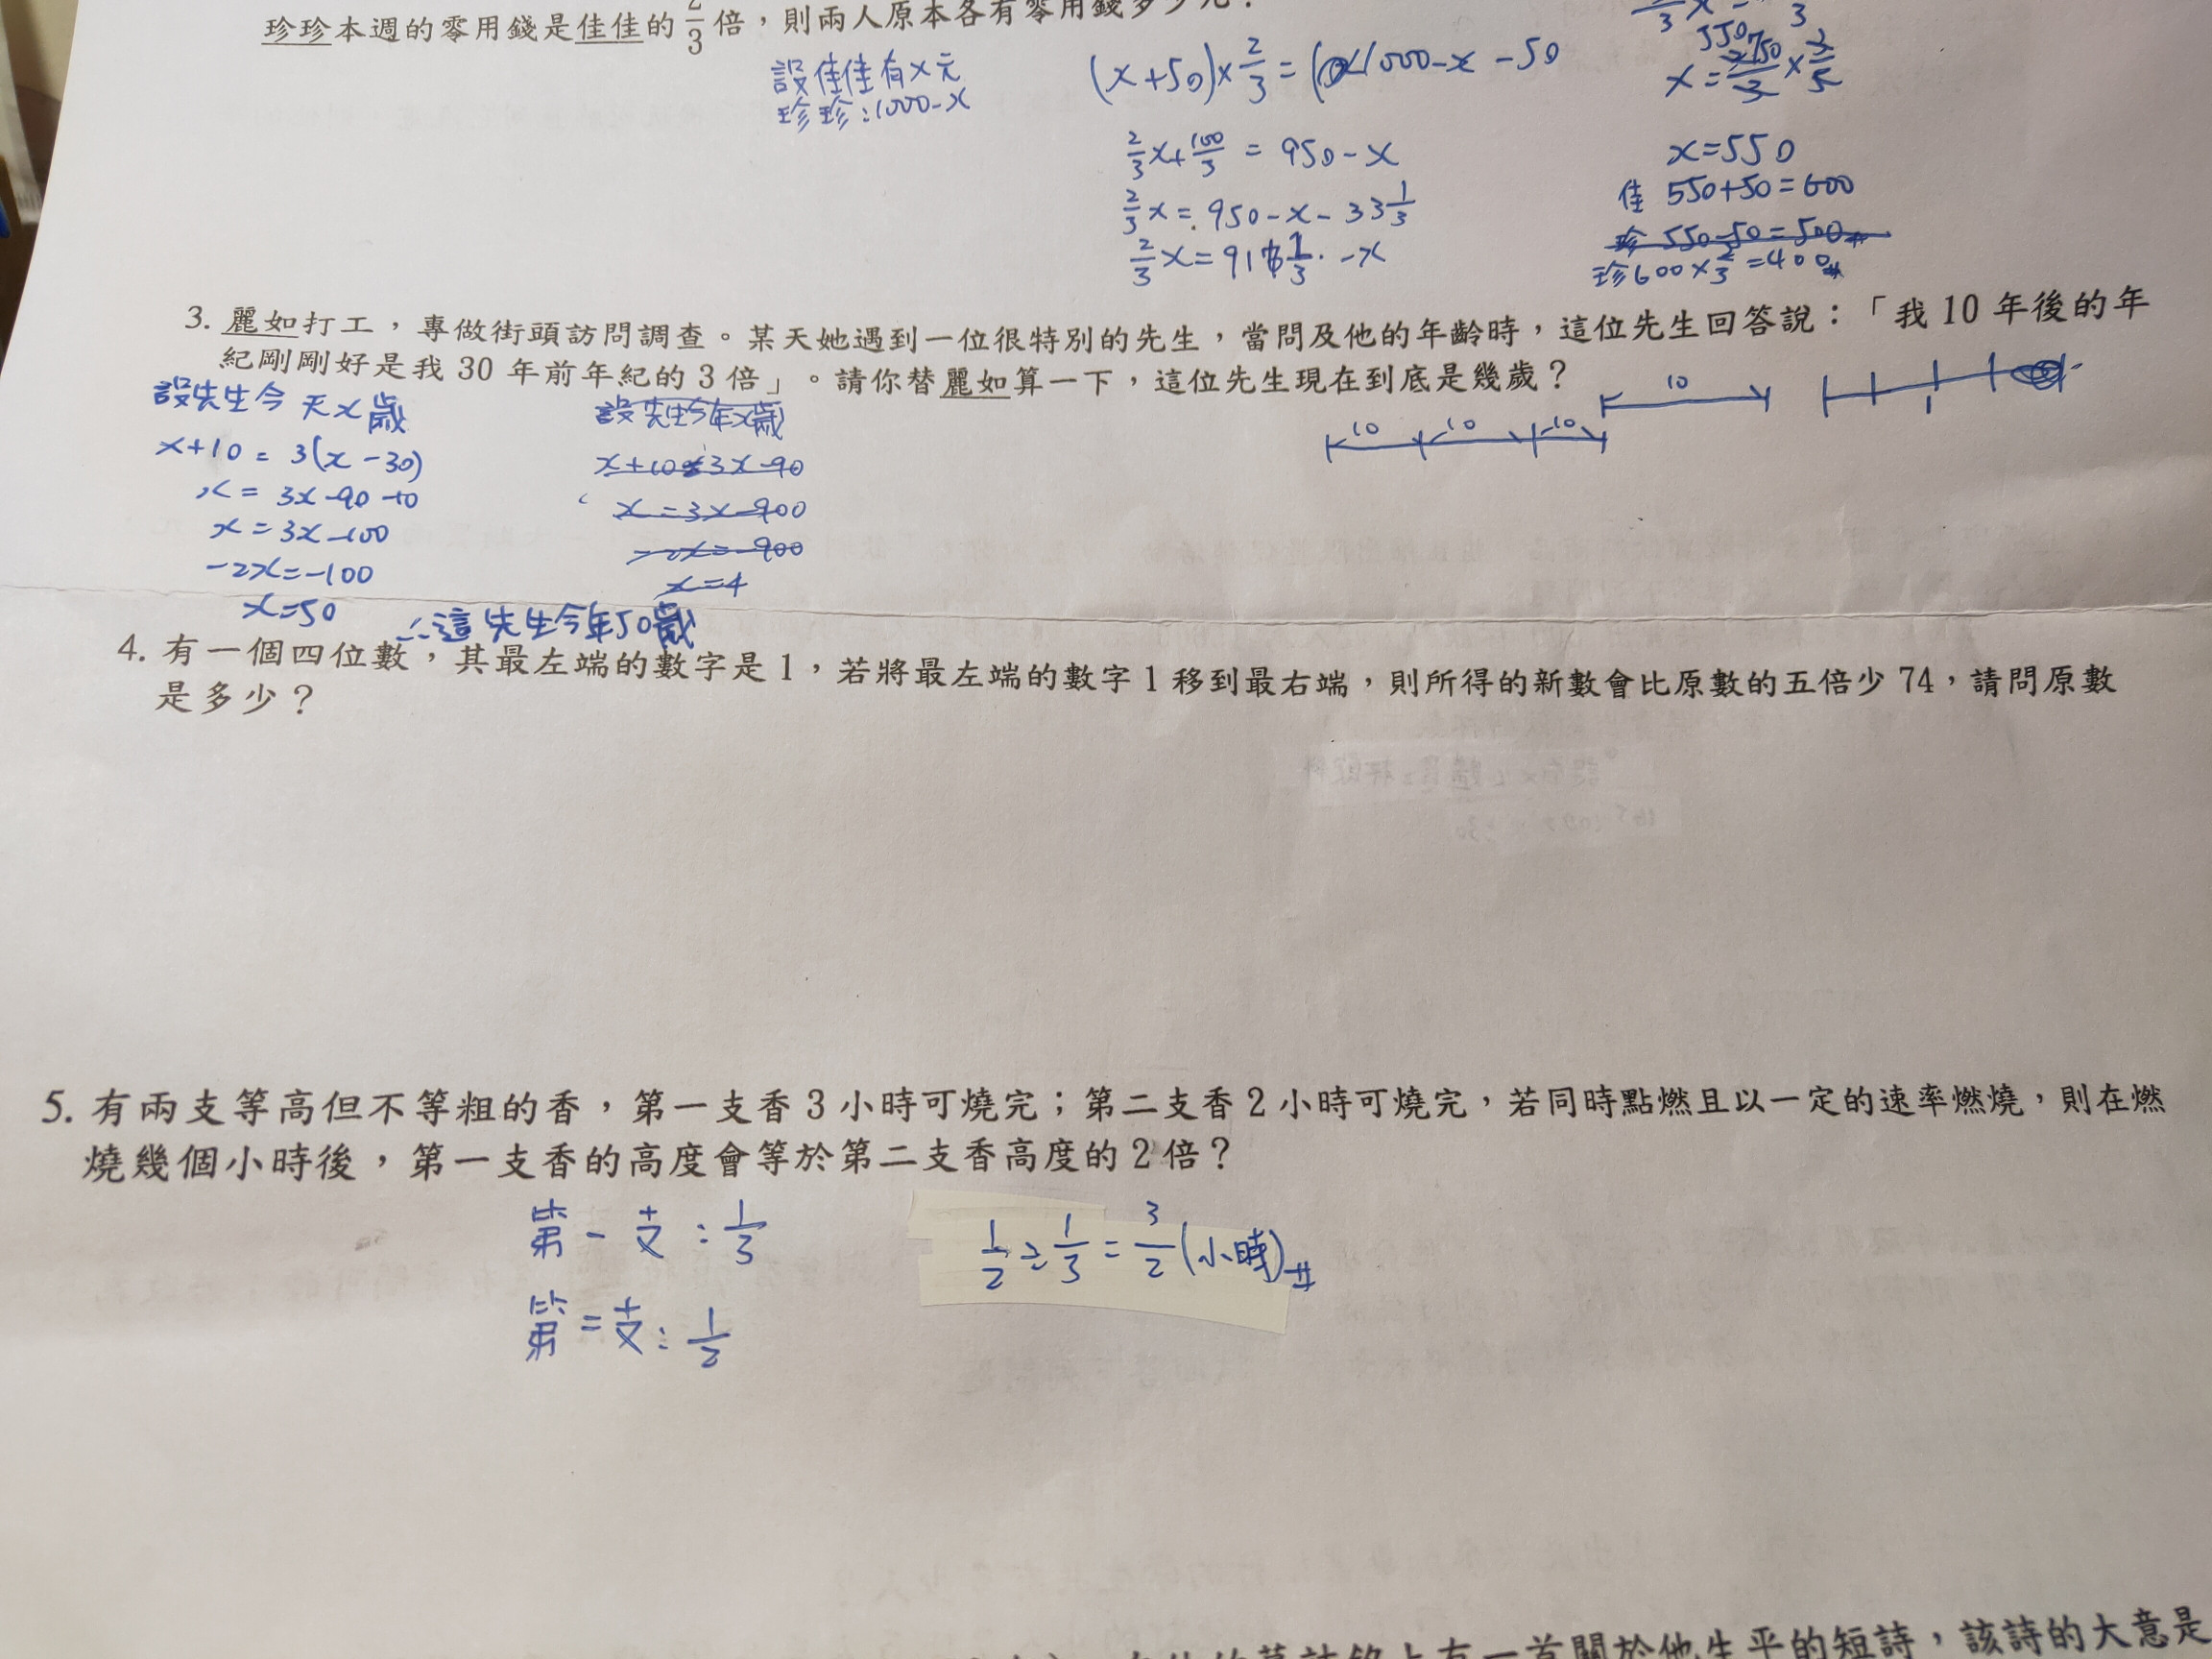 珍珍本週的零用錢是佳佳的 2/3 倍，則兩人原本各有零用錢多少元？
設佳佳有x元
珍珍：1000-x
(x+50)×2/3=(1000-x-50
2/3x+100/3=950-x
2/3x=950-x-33 1/3
x=2750/3×3/5
550
x=550
佳 550+50=600
珍 550-50=500
珍600×2/3=400#
3. 麗如打工，專做街頭訪問調查。某天她遇到一位很特別的先生，當問及他的年齡時，這位先生回答說：「我 10 年後的年
紀剛剛好是我 30 年前年紀的 3 倍」。請你替麗如算一下，這位先生現在到底是幾歲？
設先生今天x歲
x+10=3(x-30)
x=3x-90-10
x=3x-100
-2x=-100
x=50
∴這先生今年50歲
設先生今年x歲
x+10=3x-90
x=3x-900
-2x=-900
x=4
10 10 10
10
4. 有一個四位數，其最左端的數字是 1，若將最左端的數字 1 移到最右端，則所得的新數會比原數的五倍少 74，請問原數
是多少？
5. 有兩支等高但不等粗的香，第一支香 3 小時可燒完；第二支香 2 小時可燒完，若同時點燃且以一定的速率燃燒，則在燃
燒幾個小時後，第一支香的高度會等於第二支香高度的 2 倍？
第一支：1/3
第二支：1/2
1/2÷1/3=3/2(小時)#
上有一首關於他生平的短詩，該詩的大意是